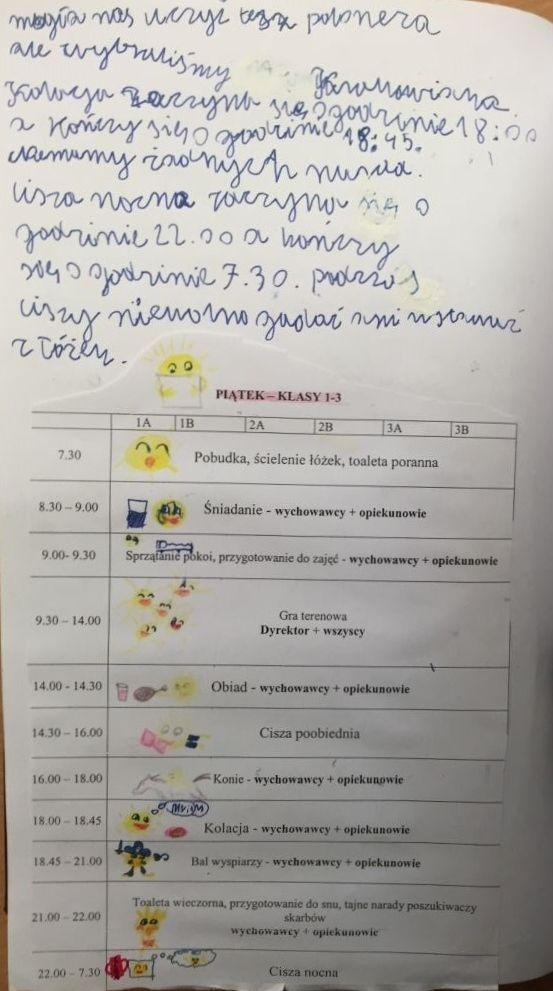 mogła nas uczyć tesz poloneza
ale wybraliśmy Krakowiaka.
Kolacja zaczyna się o godzinie 18:00
a kończy się o godzinie 18:45.
żadnych
cisza nocna zaczyna się o
godzinie 22.00 a kończy
się o godzinie 7.30. podczas
ciszy niewolno gadać ani wstawać
z łóżek.
PIĄTEK – KLASY 1-3
1A 1B 2A 2B 3A 3B
7.30 Pobudka, ścielenie łóżek, toaleta poranna
8.30 – 9.00 Śniadanie - wychowawcy + opiekunowie
9.00- 9.30 Sprzątanie pokoi, przygotowanie do zajęć - wychowawcy + opiekunowie
9.30 – 14.00 Gra terenowa
Dyrektor + wszyscy
14.00 - 14.30 Obiad - wychowawcy + opiekunowie
14.30 – 16.00 Cisza poobiednia
16.00 – 18.00 Konie - wychowawcy + opiekunowie
18.00 – 18.45 Kolacja - wychowawcy + opiekunowie
18.45 – 21.00 Bal wyspiarzy - wychowawcy + opiekunowie
21.00 – 22.00 Toaleta wieczorna, przygotowanie do snu, tajne narady poszukiwaczy
skarbów
wychowawcy + opiekunowie
22.00 – 7.30 Cisza nocna